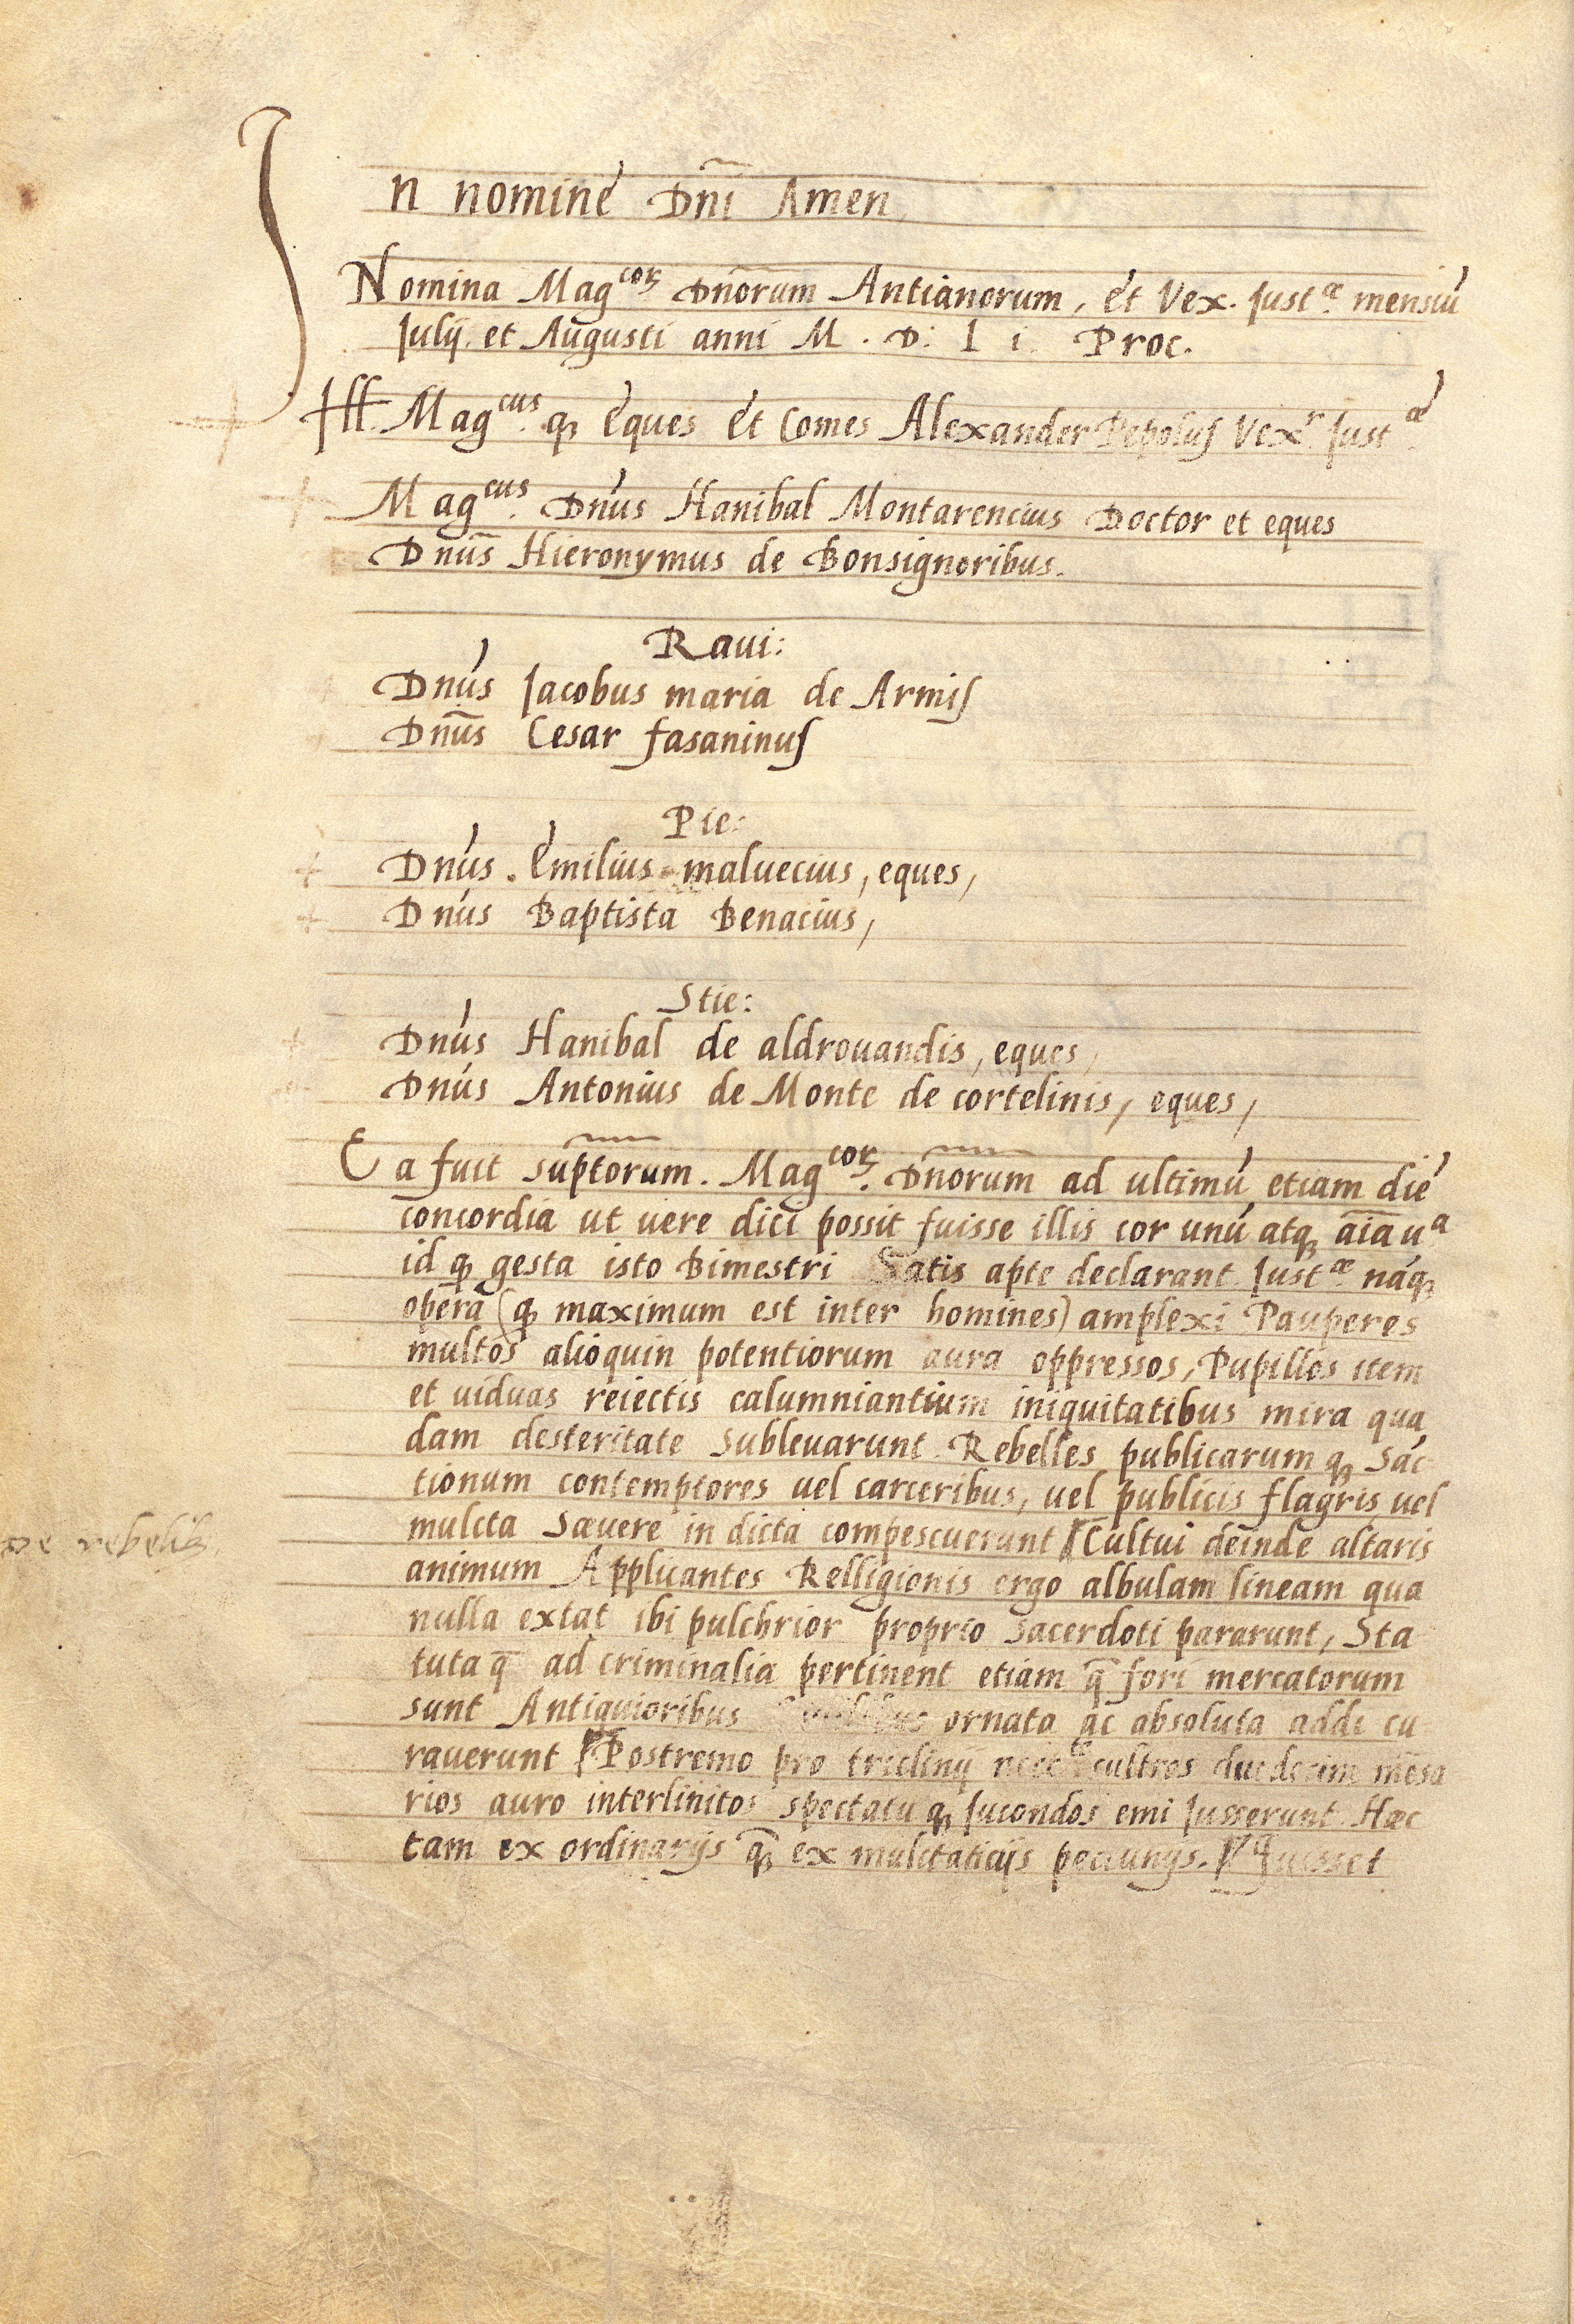 In nomine Dñi Amen
Nomina Mag^coꝝ Dñorum Antianorum, et Vex. Just^æ mensiū
Julij et Augusti anni M . D . L i . Proc.
Ill. Mag^cus qꝫ eques et Comes Alexander Pepolus Vex^r Just^æ
Mag^cus Dñus Hanibal Montarencius Doctor et eques
Dñus Hieronymus de Bonsignoribus.
Raui:
Dñus Jacobus maria de Armis
Dñus Cesar fasaninus
Pie:
Dñus . Emilius maluecius, eques,
Dñus Baptista Benacius,
Stie:
Dñus Hanibal de aldrouandis, eques,
Dñus Antonius de Monte de cortelinis, eques,
Ea fuit sup̃torum. Mag^coꝝ. Dñorum ad ultimū etiam diē
concordia ut uere dici possit fuisse illis cor unū atqꝫ aīa u^a
id qꝫ gesta isto Bimestri Satis apte declarant Just^æ nāqꝫ
operā (qꝫ maximum est inter homines) amplexi Pauperes
multos alioquin potentiorum aura oppressos, Pupillos item
et uiduas reiectis calumniantium iniquitatibus mira qua
dam desteritate subleuarunt. Rebelles publicarum qꝫ Sāc
tionum contemptores uel carceribus, uel publicis flagris uel
de rebelib
mulcta sæuere in dicta compescuerunt Cultui deinde altaris
animum Applicantes Relligionis ergo albulam lineam qua
nulla extat ibi pulchrior proprio sacerdoti pararunt, Sta
tuta q̄ ad criminalia pertinent etiam q̄ fori mercatorum
sunt Antiquioribus ornata ac absoluta addi cu
rauerunt Postremo pro triclinij cultros duodecim mēsa
rios auro interlinitos spectatu qꝫ Jucondos emi Jusserunt. Hæc
tam ex ordinarijs qꝫ ex mulctaticijs pecunijs.